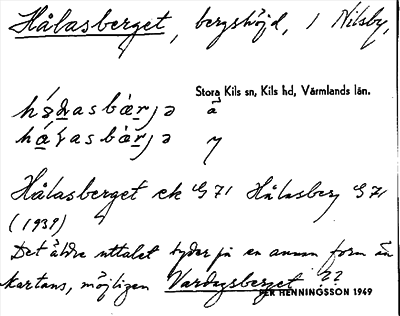 Hålasberget, bergshöjd, i Nilsby,
Stora Kils sn, Kils hd, Värmlands län.
Hålasberget ek G 71 Hålasberg G 71
(1939)
Det äldre uttalet tyder på en annan form än
kartans, möjligen Vardagsberget ??
PER HENNINGSSON 1949